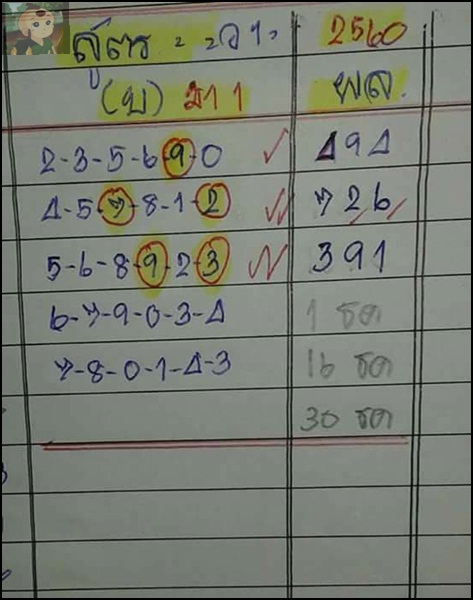 สูตร 2560
(บ) มา 1 ผล.
2-3-5-6-9-0 ✓ 494
4-5-7-8-1-2 726
5-6-8-9-2-3 391
6-7-9-0-3-4 1 ธค
7-8-0-1-4-3 16 ธค
30 ธค